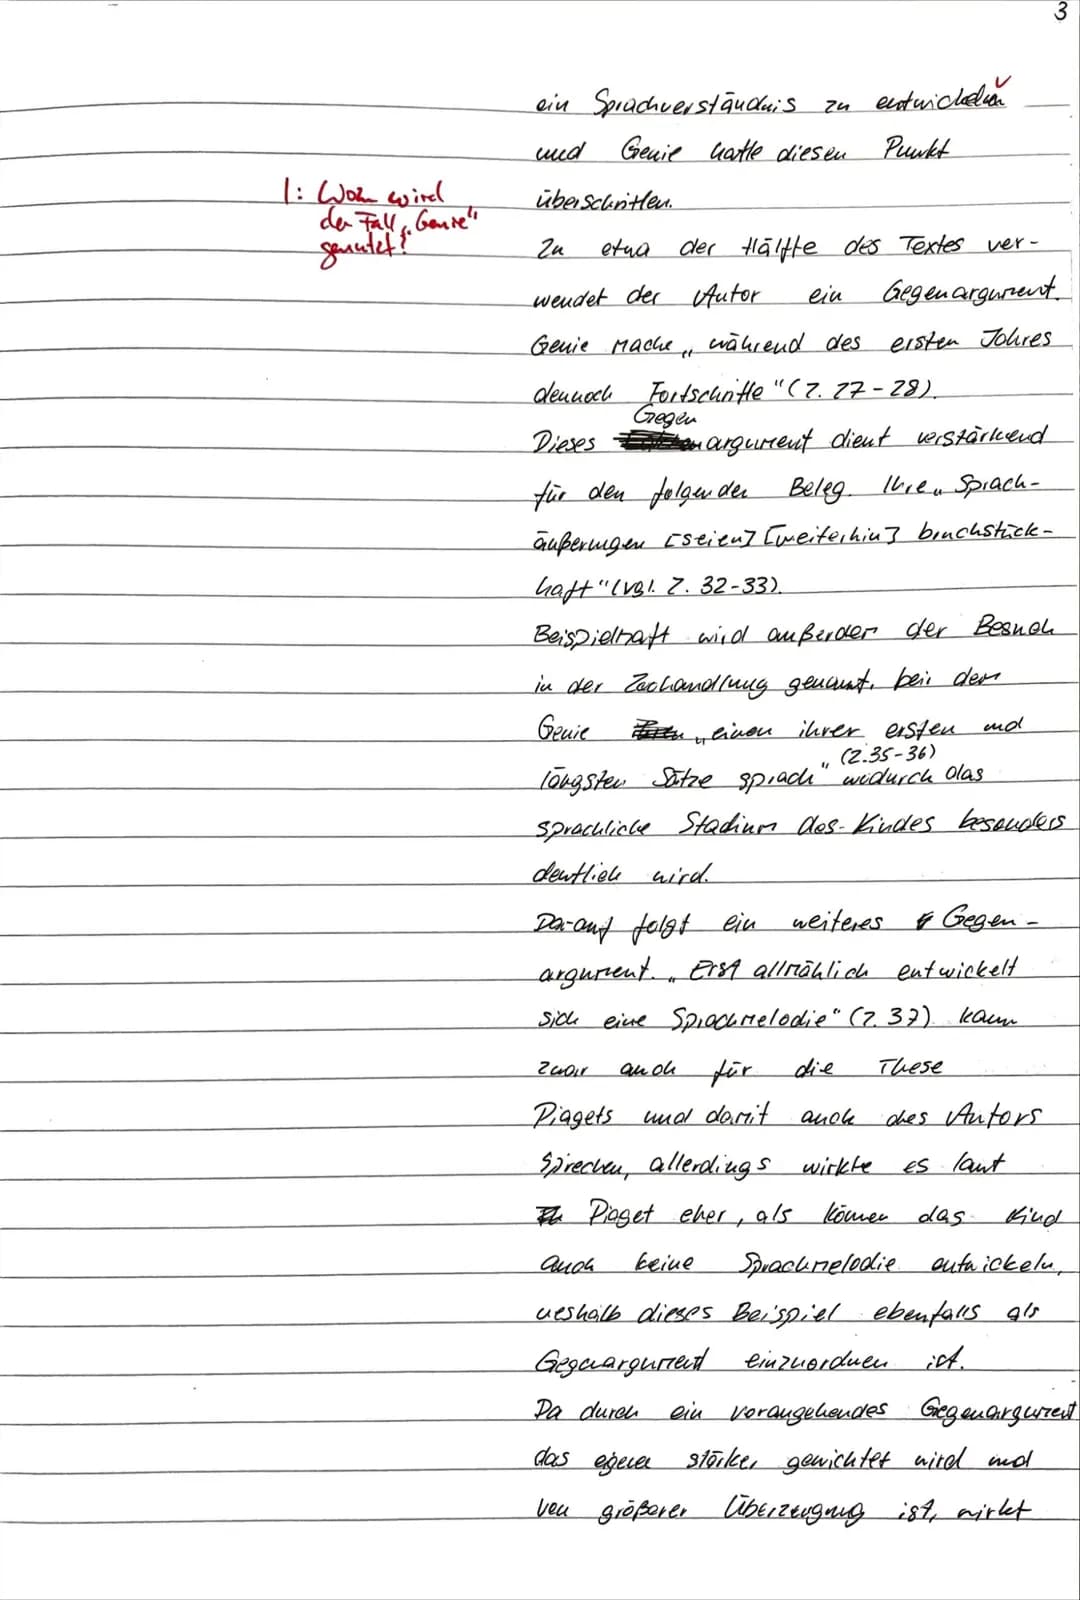 3
ein Sprachverständnis zu entwickeln
und Genie hatte diesen Punkt
überschritten.
I: Wozu wird
der Fall "Genie"
genutzt?
Zu etwa der Hälfte des Textes ver-
wendet der Autor ein Gegenargument.
Genie mache „während des ersten Jahres
dennoch Fortschritte" (Z. 27-28).
Gegen
Dieses argument dient verstärkend
für den folgenden Beleg. Ihre „Sprach-
äußerungen [seien] [weiterhin] bruchstück-
haft" (vgl. Z. 32-33).
Beispielhaft wird außerdem der Besuch
in der Zoohandlung genannt, bei dem
Genie „einen ihrer ersten und
(Z.35-36)
längsten Sätze sprach" wodurch das
sprachliche Stadium des Kindes besonders
deutlich wird.
Darauf folgt ein weiteres Gegen-
argument. „Erst allmählich entwickelt
sich eine Sprachmelodie" (Z. 37) kann
zwar auch für die These
Piagets und damit auch des Autors
sprechen, allerdings wirkte es laut
Piaget eher, als können das Kind
auch keine Sprachmelodie entwickeln,
weshalb dieses Beispiel ebenfalls als
Gegenargument einzuordnen ist.
Da durch ein vorangehendes Gegenargument
das eigene stärker gewichtet wird und
von größerer Überzeugung ist, wirkt